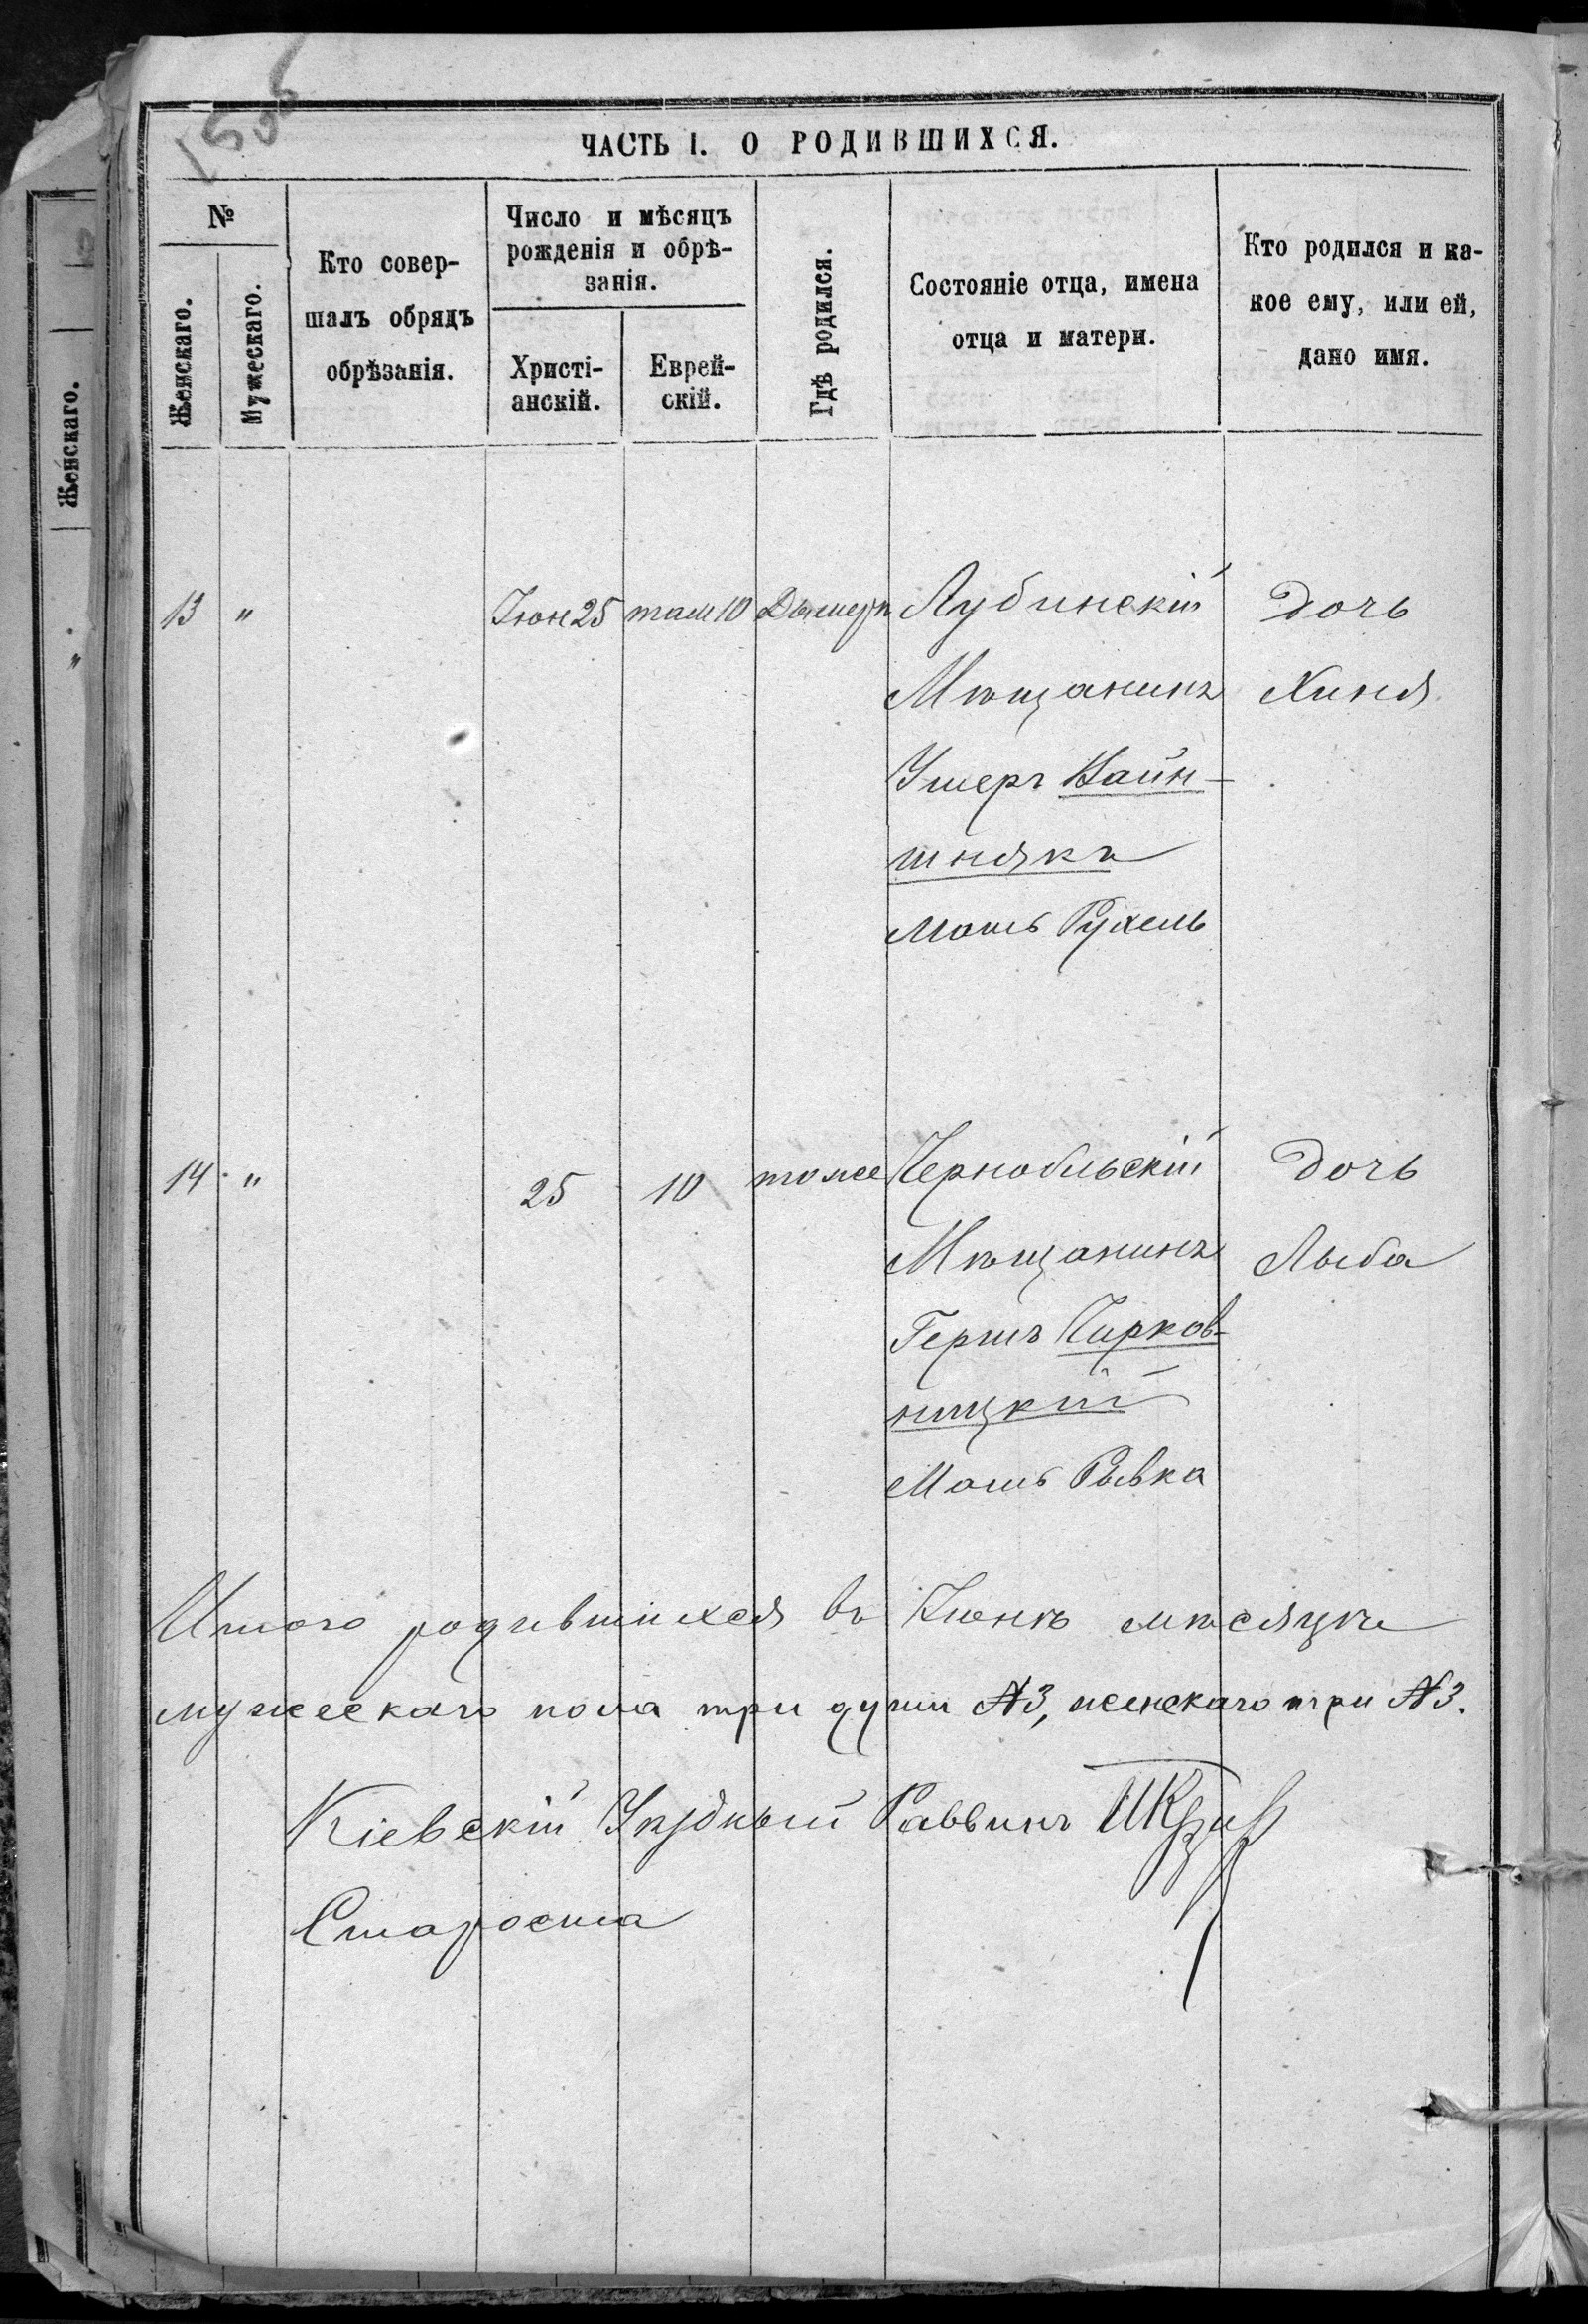 ЧАСТЬ I. О РОДИВШИХСЯ.
№
Женскаго.
Мужескаго.
Кто совер-
шалъ обрядъ
обрѣзанія.
Число и мѣсяцъ
рожденія и обрѣ-
занія.
Христі-
анскій.
Еврей-
скій.
Гдѣ родился.
Состояніе отца, имена
отца и матери.
Кто родился и ка-
кое ему, или ей,
дано имя.
13 " Іюн 25 там 10 Дымеръ Лубинскій Дочь
Мѣщанинъ Хиня
Ушеръ Вайн-
шнякъ
Мать Рухель
14 " 25 10 тоже Чернобыльскій Дочь
Мѣщанинъ Лыба
Гершъ Чирков-
ницкій
Мать Рывка
Итого родившихся въ Іюнѣ мѣсяцѣ
мужескаго пола три души №3, женскаго три №3.
Кіевскій Уѣздный Раввинъ
Староста
Женскаго.
"